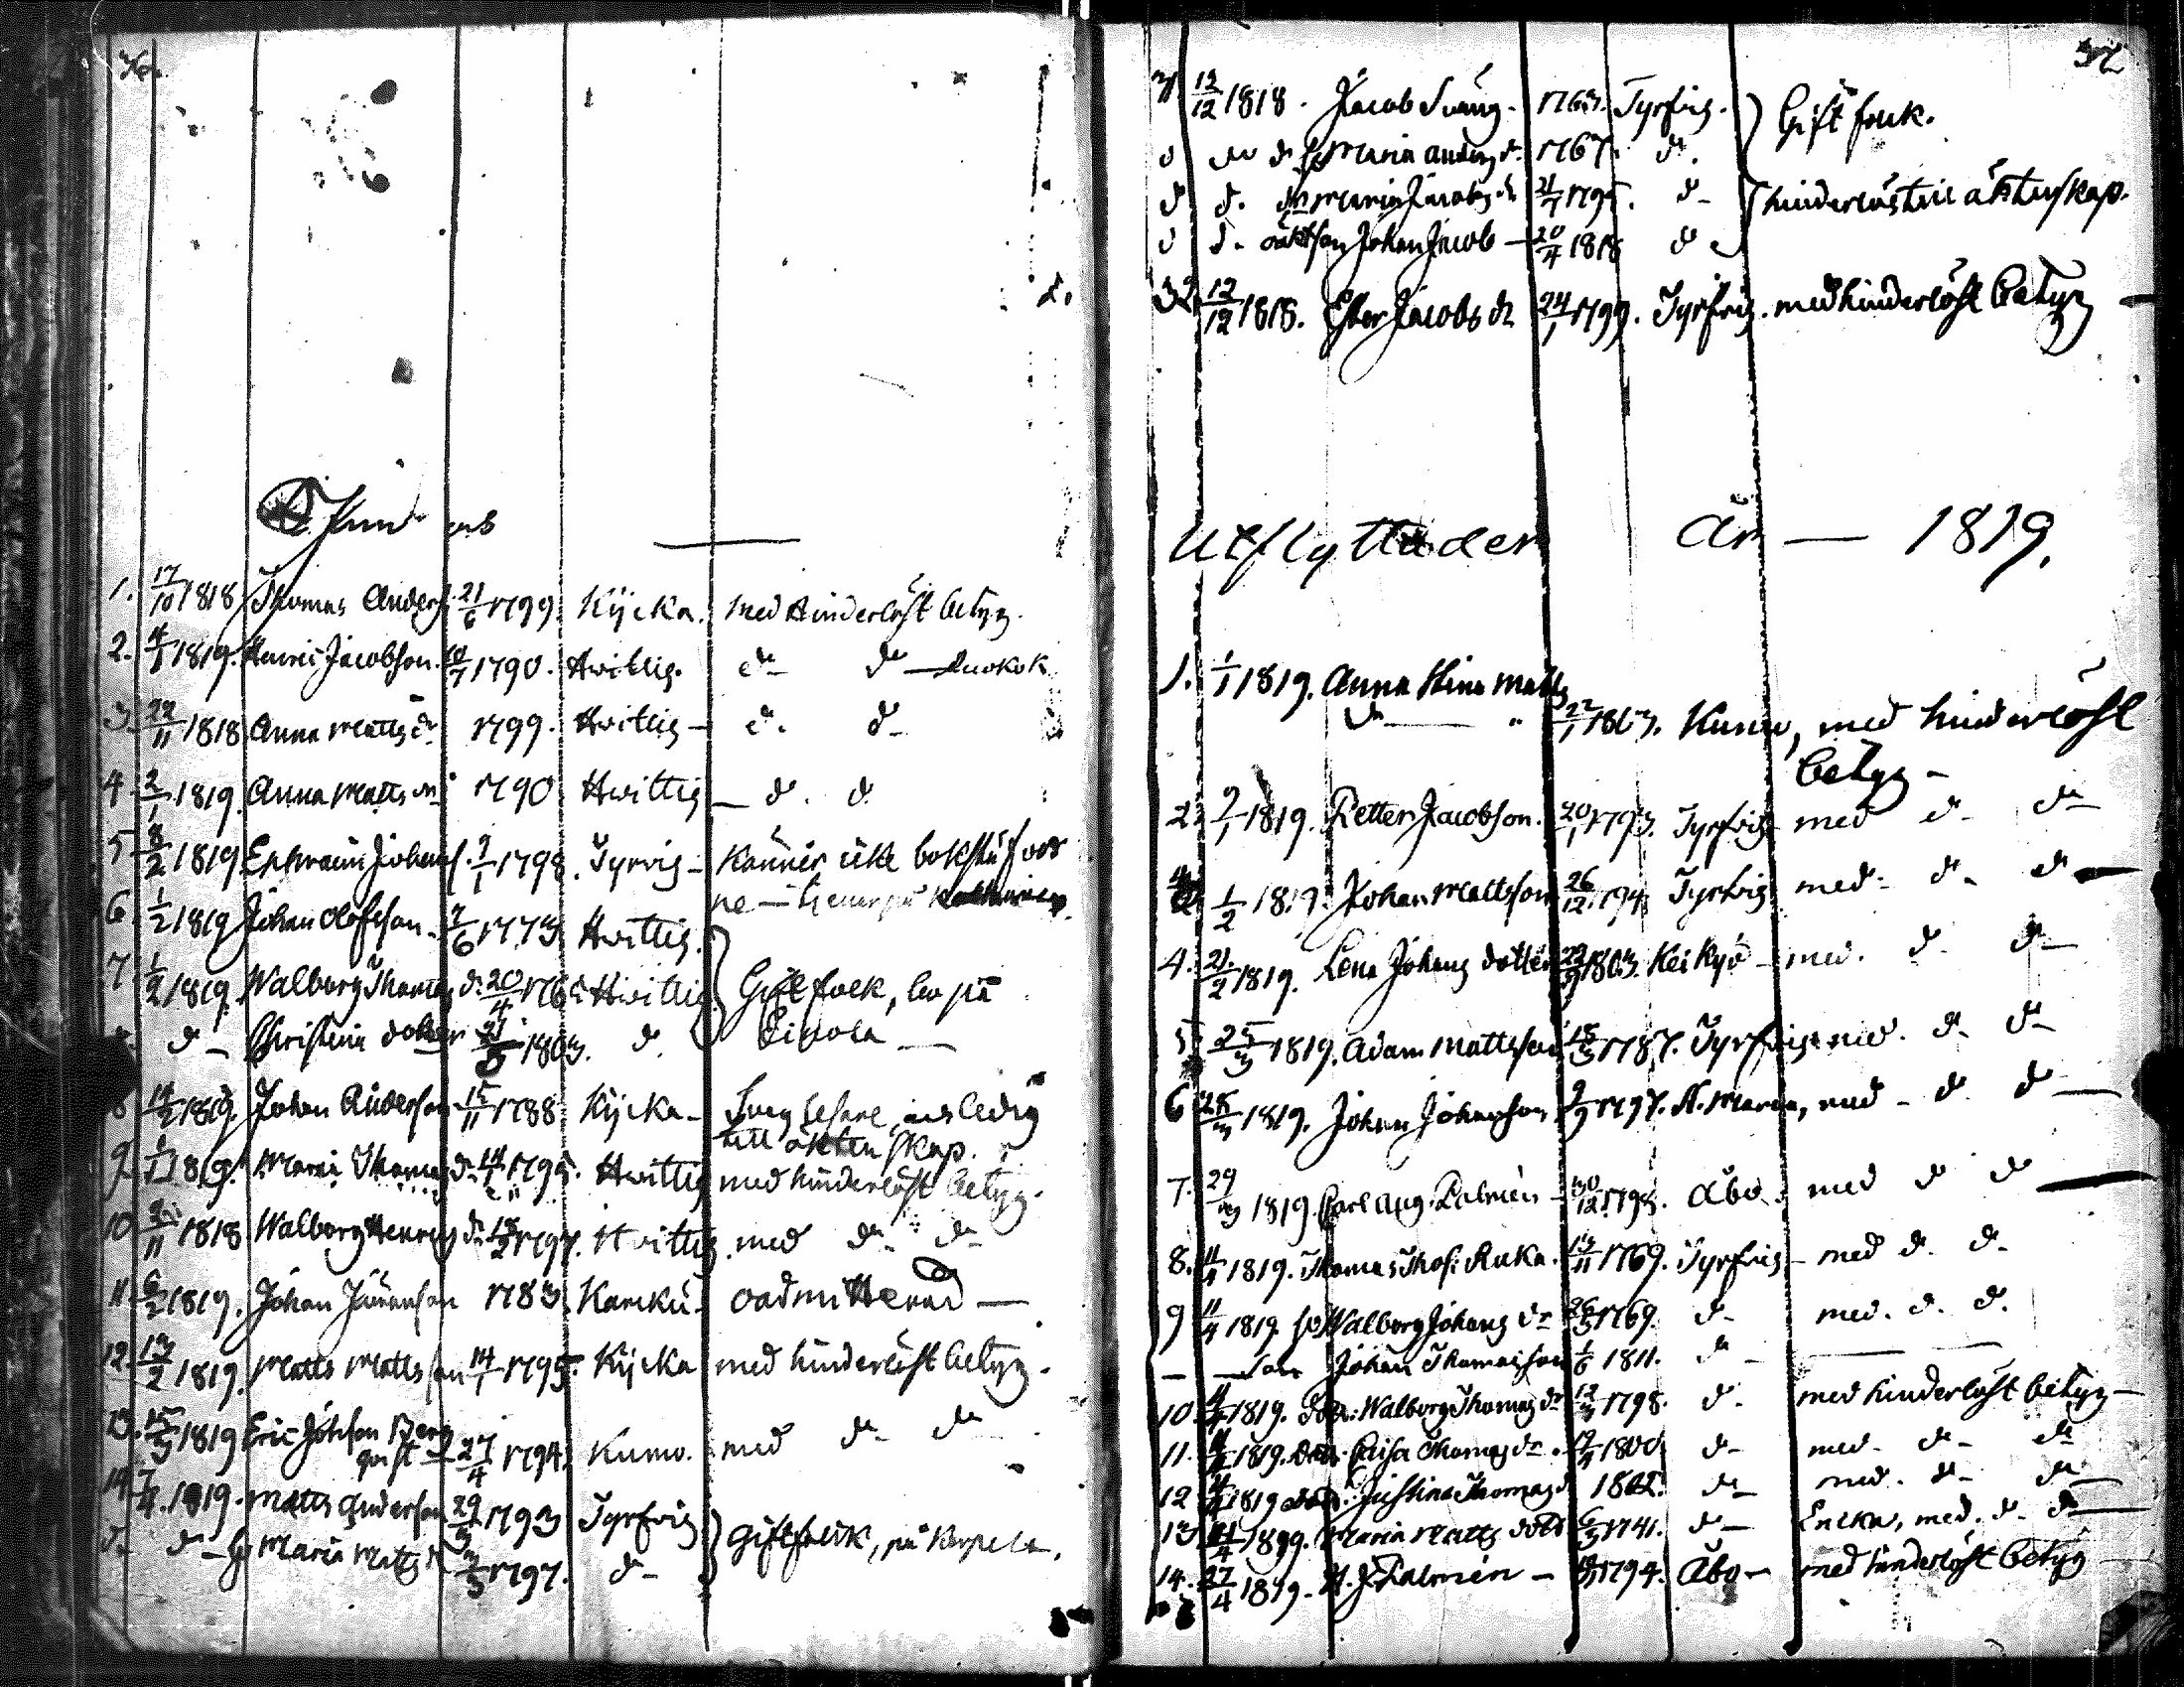 1. 17/10 1818 Thomas Anders. 21/6 1799. Kÿcka. med hinderlöst betyg.
2. 4/1 1819. Henric Jacobson. 1790. Hvittis. do do
3. 22/11 1818 Anna Matts dr 1799. Hvittis - do do
4. 2/1 1819. Anna Matts dr 1790 Hvittis - do do
5 3/2 1819 Ephraim Johans. 9/1 1798. Tyrvis - känner icke bokstäfver
6. 1/2 1819 Johan Olofsson. 7/6 1773 Hvittis. ne - tjenar på
7. 1/2 1819. Walborg Thomas dr 20/4 Hvittis. Gift folk, bo på
do - Christina dotter 1803. do
8 14/2 1819. Johan Anderson 15/11 1788. Kÿcka - ledig
till äktenskap.
9. 1819. Maria Thomas dr 1795. Hvittis med hinderlöst betyg.
10 11 1818 Walborg Henrics dr 1797. Hvittis. med do do
11. 6/2 1819. Johan Jöranson 1783. Karcku - oadmitterad
12. 13/2 1819. Matts Mattsson 14/1 1795. Kÿcka med hinderlöst betyg.
13. 15/3 1819 Eric Johnson Berg
qvist 27/4 1794. Kumo. med do do
14 7/4 1819. Matts Anderson 29/3 1793 Tyrfvis
do do - h. Maria Matts dr 1797. do - Gift folk, på
12/12 1818. Jacob Svang. 1763. Tyrfvis. Gift folk.
do do h. Maria Anders dr. 1767. do.
do do. dr Maria Jacobs dr 21/7 1795. do - hinderlös till äktenskap.
do do - oäkt son Johan Jacob - 20/4 1818 do
32. 12/12 1818. Ester Jacobs dr 24/1 1799. Tyrfvis. med hinderlöst betyg
Utflyttader År — 1819.
1. 1/1 1819. Anna Stina Matts
dr 22/1 1803. Kumo, med hinderlöst
betyg -
2. 9/1 1819. Petter Jacobson. 20/1 1793. Tyrfvis med do do
1/2 1819. Johan Mattsson 26/12 194. Tyrfvis med do do
4. 21/2 1819. Lena Johans dotter 1803. Keikyö - med. do do
5 25/3 1819. Adam Mattsson 18/3 1787. Tyrfvis med. do do
6 28/3 1819. Johan Johanson 9/9 1797. med - do do
7. 29/3 1819. Carl Aug. Palmén - 30/12 1798. Åbo. med do do
8. 11/4 1819. Thomas Thos: Ruka. 13/11 1769. Tyrfvis - med do. do.
9 11/4 1819. h. Walborg Johans dr 26/3 1769. do - med. do. do.
- - Son Johan Thomasson 1/6 1811. do -
10. 11/4 1819. dotr. Walborg Thomas dr 12/3 1798. do. med hinderlöst betyg -
11. 11/4 1819. dotr. Caisa Thomas dr. 1800 do - med - do - do
12. 11/4 1819 dotr. Justina Thomas d. 1802. do - med. do - do
13. 11/4 1899. Maria Matts dotr 6/3 1741. do - Enka, med. do. do
14. 27/4 1819. Palmén - 1794. Åbo - med hinderlöst betyg